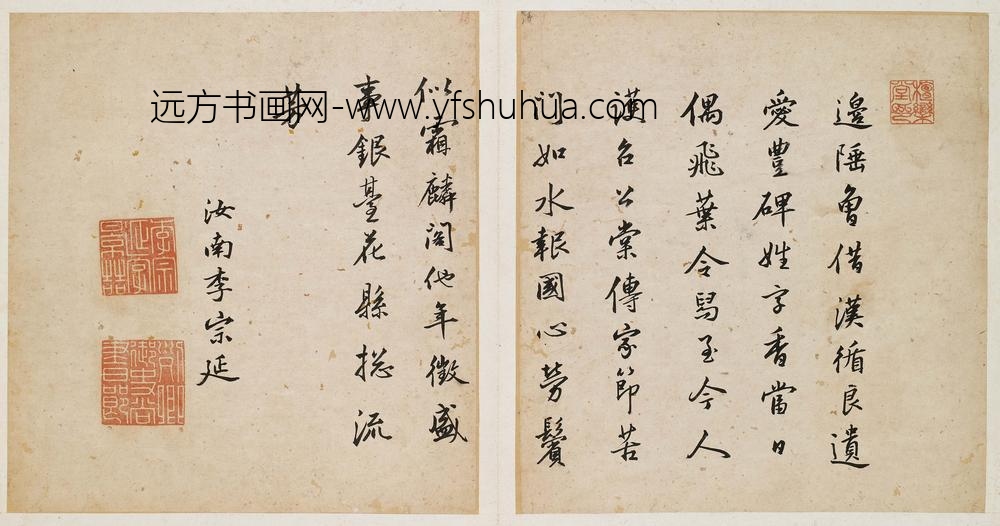 邊陲曾借漢循良遺
愛豐碑姓字香當日
偶飛葉令舄至今人
護召公棠傳家節苦
門如水報國心勞鬢
似霜麟閣他年徵盛
事銀臺花縣揔流
芳
汝南李宗延
远方书画网-www.yfshuhua.com